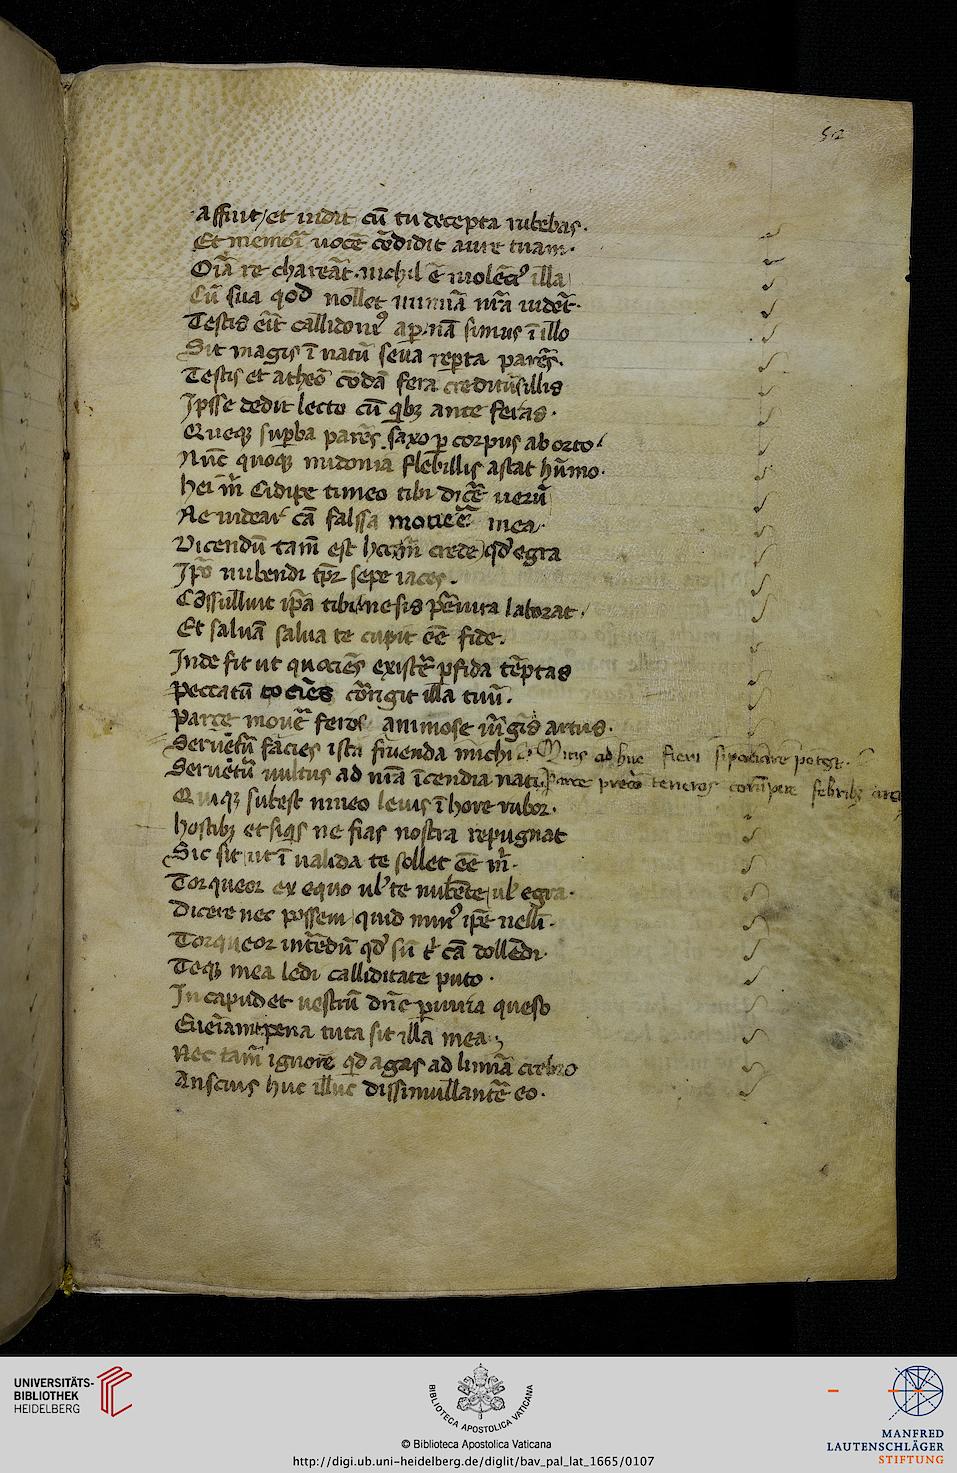 52
Affuit et uidit cū tu decepta iurabas.
Et memori uocē cōdidit aure tuam.
Oīa re chareāt. nichil ē uiolēci9 illa
Cū sua qod nollet numīa nr̄a uidēt.
Testis erit callidoni9 ap. nā simus ī illo
Sit magis ī natū seua rep̱ta parēs.
Testis et atheō cōdā fera creditus illis
Ipsse dedit leto cū qibꝫ ante feras.
Queqꝫ sup̱ba parēs saxo p̱ corpus ab orto
Nūc quoqꝫ midonia flebillis astat humo.
Hei m̄ Cidipe timeo tibi dic̄e uerū
Ne uidear cā falssa mouē mea.
Dicendū tam̄ est hoc m̄ crede qd̕ egra
Ipō nubendi tp̄r sepe iaces.
Cōssullint ip̄a tibi ne sis p̄iura laborat.
Et saluā salua te cupit eē fide.
Inde fit ut quociēs existē p̱fida tēptas
Peccatū tociēs corrigit illa tuū.
Parce mouē feros animose uirgīs artus.
Seruētur facies ista fruenda michi
Mitis ad huc fieri si paciare potest.
Seruētur uultus ad nr̄a īcendia nati
Parce precor teneros corrūpere febribꝫ artus
Quiqꝫ subest niueo leuis ī hore rubor.
hostibꝫ et siqis ne fias nostra repugnat
Sic sit ut ī ualida te sollet eē m̄.
Torqueor ex equo ul̕ te nubēte ul̕ egra.
Dicere nec possem quid min9 ip̄e uelī.
Torqueor intēdū qd̕ sū t̕ cā dollēdi.
Teqꝫ mea ledi calliditate puto.
In capud et uestrū dn̄e p̱iuria queso
Eueīant pena tuta sit illa mea.
Nec tam̄ ignorē qid agas ad limīa crebro
Anscius huc illuc dissimullantē eo.
UNIVERSITÄTS-
BIBLIOTHEK
HEIDELBERG
BIBLIOTECA APOSTOLICA VATICANA
© Biblioteca Apostolica Vaticana
http://digi.ub.uni-heidelberg.de/diglit/bav_pal_lat_1665/0107
MANFRED
LAUTENSCHLÄGER
STIFTUNG